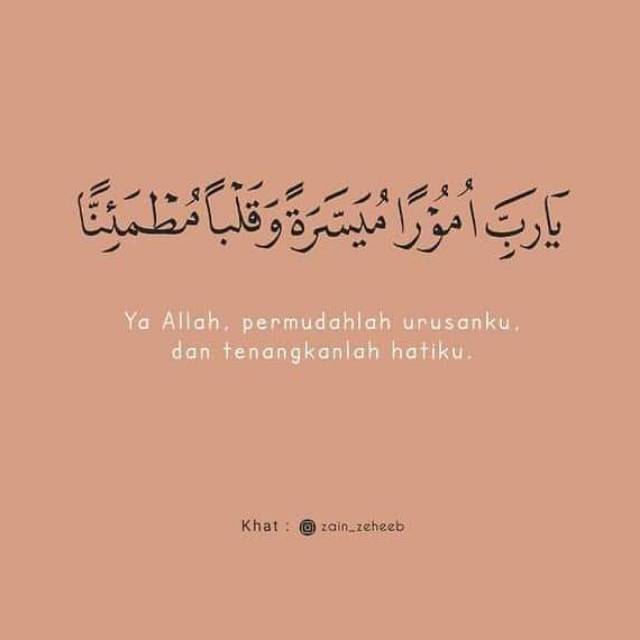 يَارَبِّ اُمُوْرًا مُيَسَّرَةً وَقَلْبًا مُطْمَئِنًّا
Ya Allah, permudahlah urusanku,
dan tenangkanlah hatiku.
Khat : zain_zeheeb